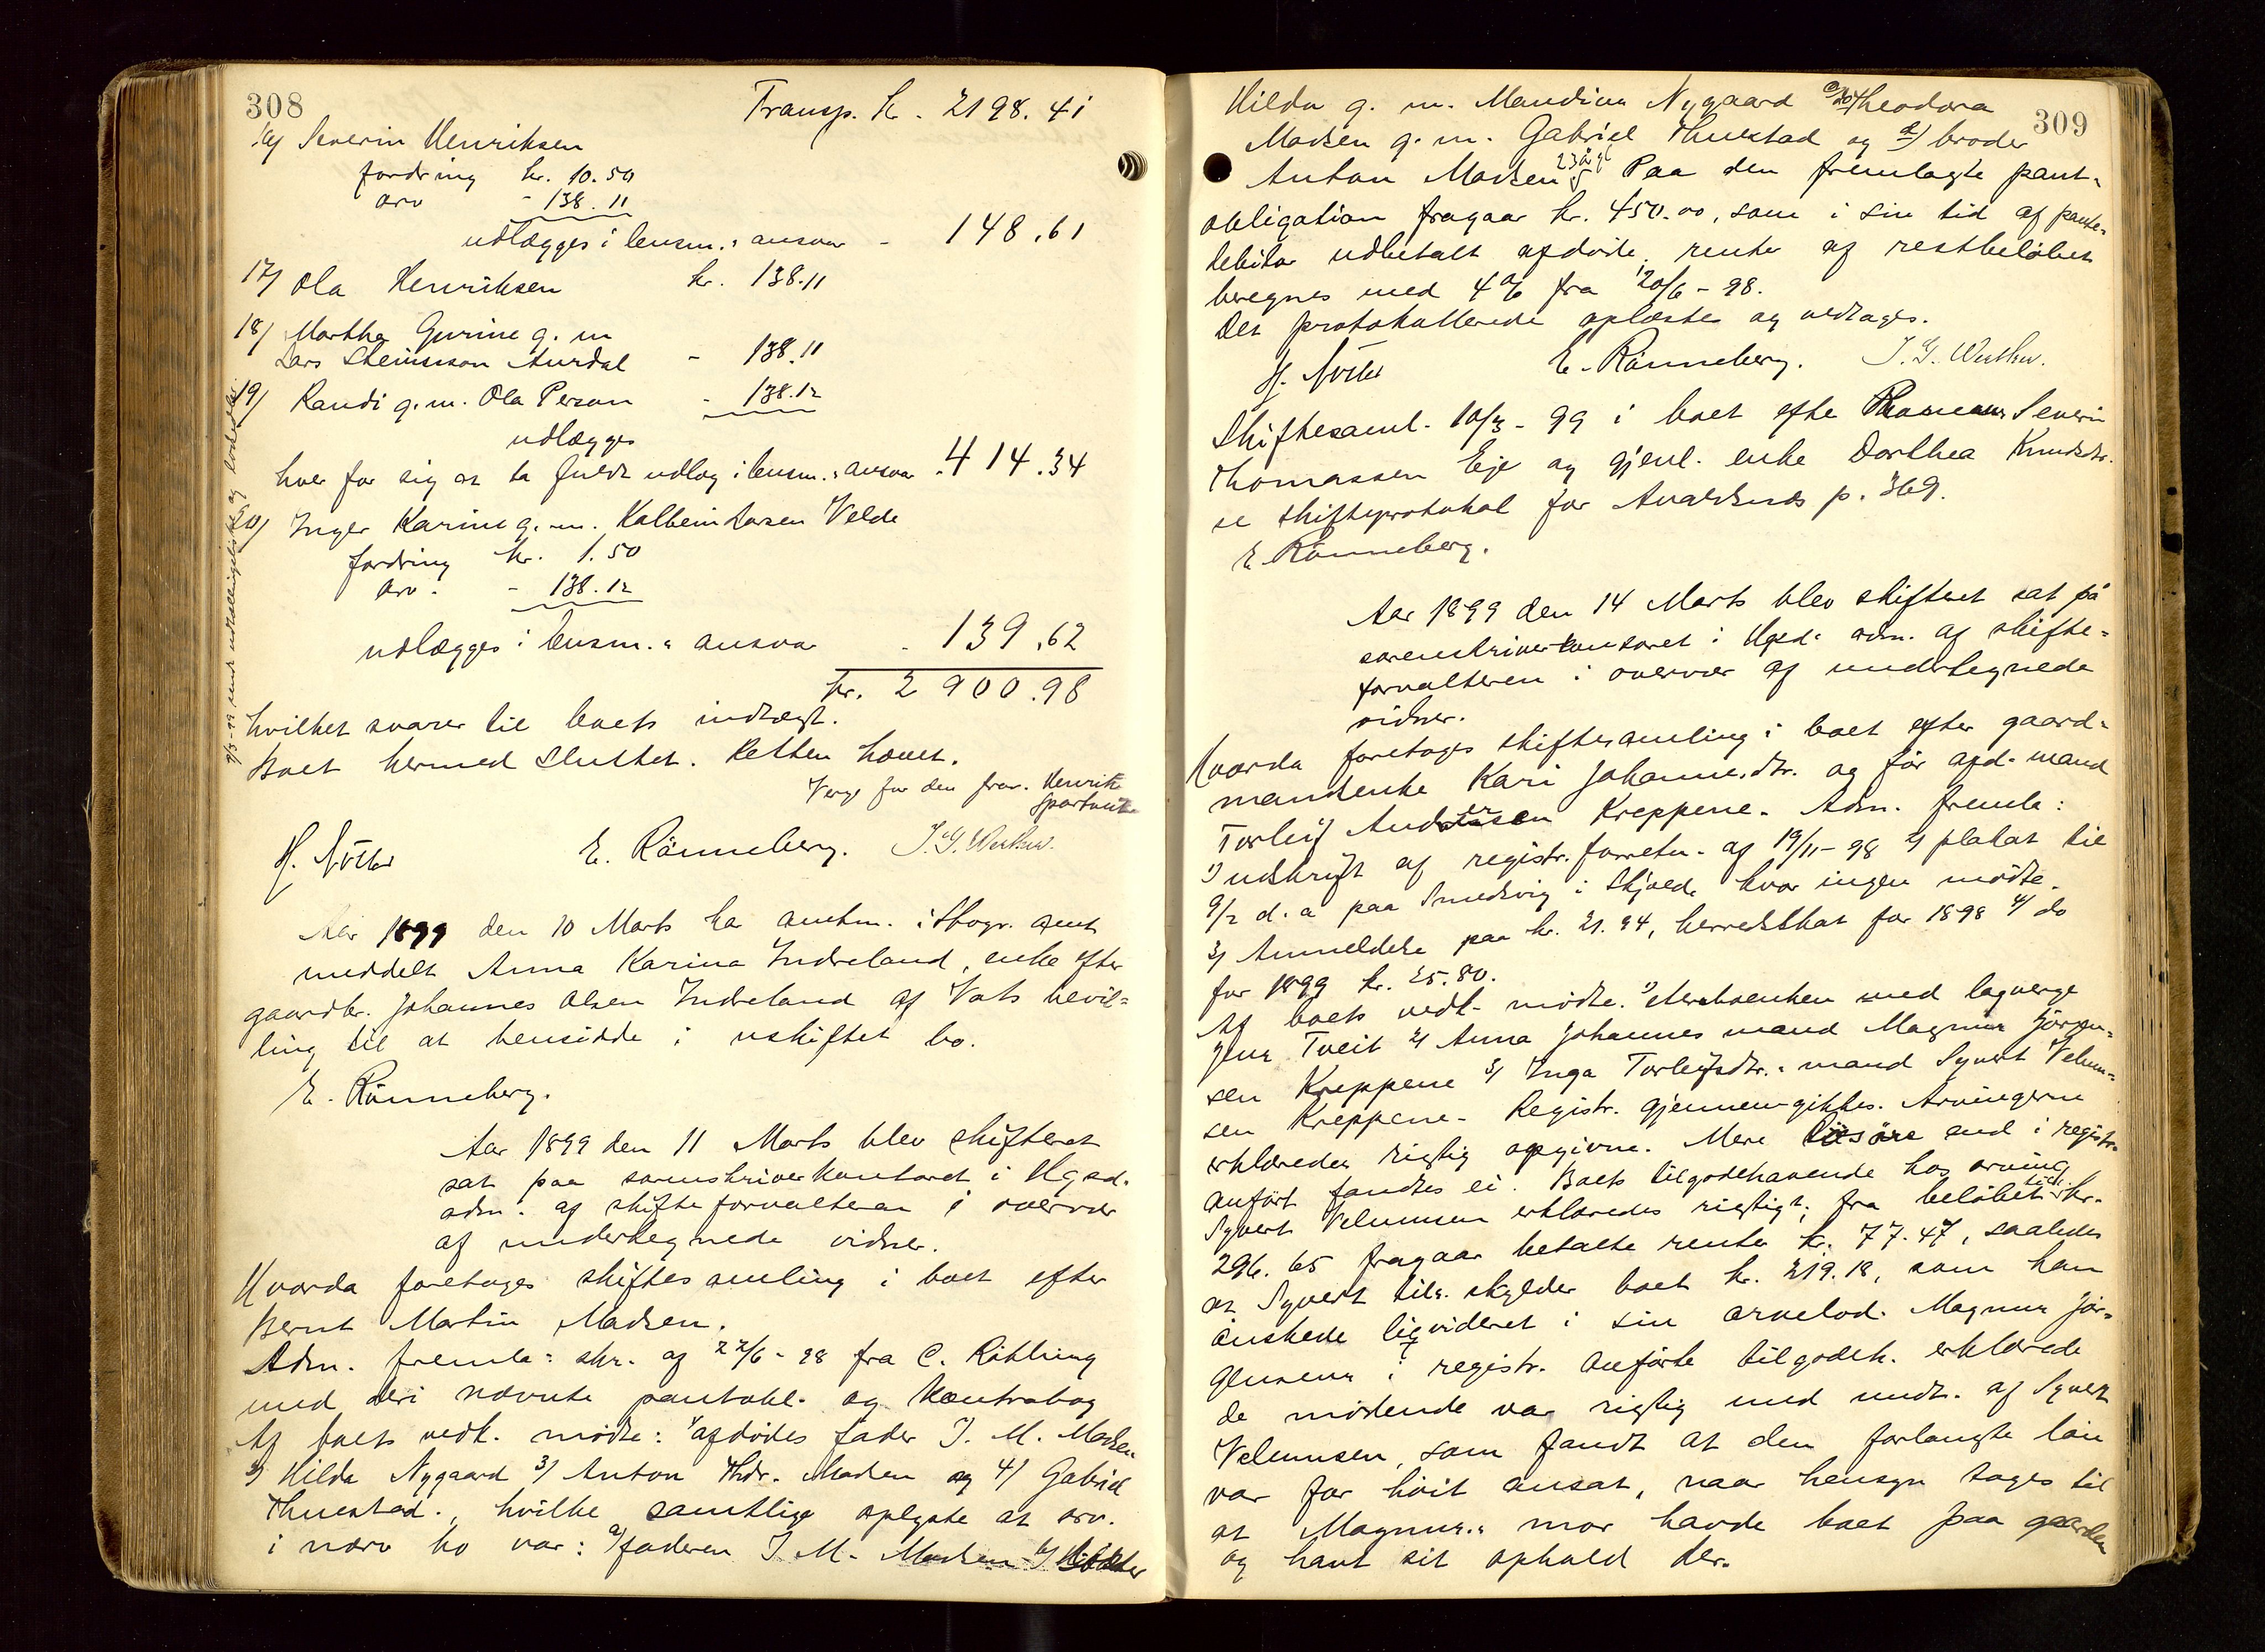 308
Transp. kr. 2198.41
16/ Severin Henriksen
fordring kr. 10.50
arv - 138.11
udlægges i lensm.s ansvar - 148.61
17/ Ola Henriksen kr. 138.11
18/ Martha Gurine g. m.
Lars Steinsson Aurdal - 138.11
19/ Randi g. m. Ola Person - 138.12
udlægges
hver for sig at ta fuldt udlæg i lensm.s ansvar - 414.34
20/ Inger Karine g. m. Kolbein Larsen Velde
fordring kr. 1.50
arv. - 138.12
udlægges i lensm.s ansvar - 139.62
kr. 2900.98
hvilket svarer til boets indtægt.
Boet hermed Sluttet. Retten hævet.
Verge for den frav. Henrik
H. Nötler E. Rönneberg.
Aar 1899 den 10 Marts ha amtm. i Stvgr. amt
meddelt Anna Karina Indreland, enke efter
gaardbr. Johannes Olsen Indreland af Vats bevil=
ling til at hensidde i uskiftet bo.
E. Rönneberg.
Aar 1899 den 11 Marts blev skifteret
sat paa sorenskriverkontoret i Hgsd.
adm. af skifteforvalteren i overvær
af undertegnede vidner.
Hvorda foretoges skiftesamling i boet efter
Bernt Martin Madsen.
Adm. fremla: skr. af 22/6-98 fra C. Röthing
med deri nævnte pantobl. og kontrabog
Af boets vedk. mödte: 1/ afdödes fader J. M. Madsen
2/ Hilda Nygaard 3/ Anton Thdr. Madsen og 4/ Gabriel
Thuestad., hvilke samtlige oplyste at arv.
i nærv bo var: a/ faderen J. M. Madsen b/ söster
309
Hilda g. m. Mandius Nygaard c/ do Theodora
Madsen g. m. Gabriel Thuestad og d/ broder
Anton Madsen 23 åg! Paa den fremlagte pant=
obligation fragaar kr. 450.00, som i sin tid af pante=
debitor udbetalt afdöde. rente af restbelöbet
beregnes med 4 % fra 20/6-98.
Det protokollerede oplæstes og vedtages.
H. Nötler E. Rönneberg.
Skiftesaml. 10/3-99 i boet efte Severin
Thomassen Eje og gjenl. enke Dorthea Knudsdtr.
se skifteprotokol for Avaldsnes p. 369.
E. Rönneberg.
Aar 1899 den 14 Marts blev skifteret sat på
sorenskriverkontoret i Hgsd. adm. af skifte=
forvalteren i overvær af undertegnede
vidner.
Hvorda foretoges skiftesamling i boet efter gaard=
mandsenke Kari Johannesdtr. og för afd. mand
Torleif Andersen Kreppene. Adm. fremla:
1) udskrift af registr. forretn. af 19/11-98 2/ plakat til
9/2 d. a paa Smedsvig i Skjold. hvor ingen mödte.
3/ Anmeldelse paa kr. 21.94, herredsskat for 1898 4/ do
for 1899 kr. 25.80.
Af boets vedk. mödte: 1) med lagverge
Jens Tveit 2/ Anna Johannes mand Magnus Jörgen=
sen Kreppene 3/ Inga Torleifsdtr.s mand Syvert Velum=
sen Kreppene. Registr. gjennemgikkes. Arvingerne
erklæredes rigtig opgivne. Mere lösöre end i registr.
anfört fandtes ei. Boets tilgodehavende hos arving
Syvert Velumsen erklæredes rigtigt; fra belöbet kr.
296.65 fragaar betalte renter kr. 77.47, saaledes
at Syvert tils. skylder boet kr. 219.18, som han
önskede liqvideret i sin arvelod. Magnus Jör=
gensens i registr. anförte tilgodeh. erklærede
de mödende var rigtig med undt. af Syvert
Velumsen, som fandt at den forlangte lön
var for höit ansat, naar hensyn toges til
at Magnus.s mor havde boet paa gaarden
og havt sit ophold der.